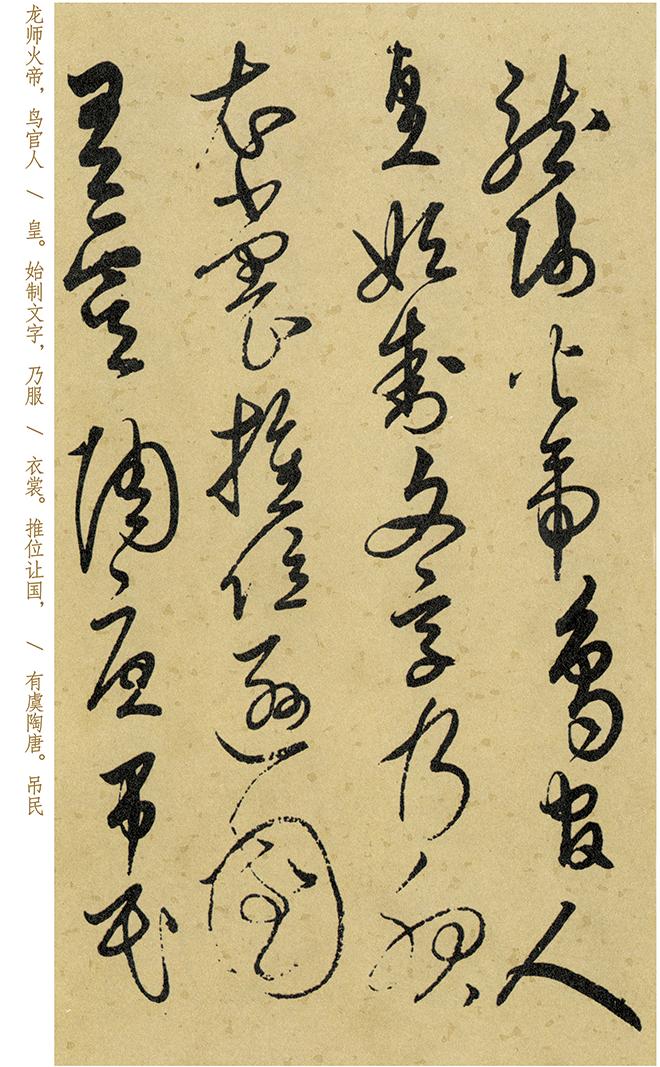 龍師火帝鳥官人
皇始制文字乃服
衣裳推位遜國
有虞陶唐弔民
龙师火帝，鸟官人 / 皇。始制文字，乃服 / 衣裳。推位让国， / 有虞陶唐。吊民